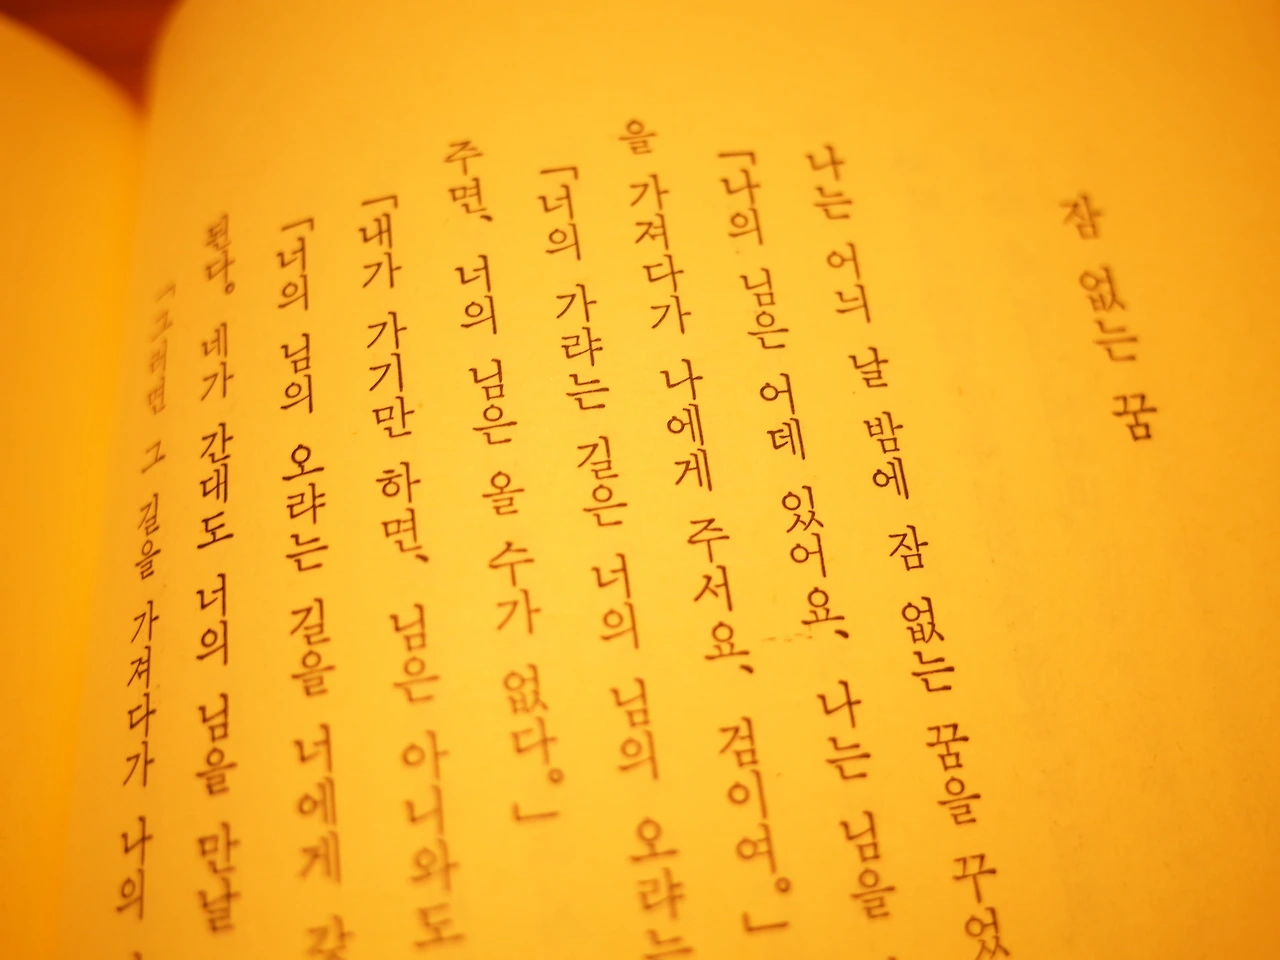 잠 없는 꿈
나는 어늬 날 밤에 잠 없는 꿈을 꾸었
「나의 님은 어데 있어요, 나는 님을
을 가져다가 나에게 주서요, 검이여。」
「너의 가랴는 길은 너의 님의 오랴는
주면, 너의 님은 올 수가 없다。」
「내가 가기만 하면, 님은 아니와도
「너의 님의 오랴는 길을 너에게 갖
된다。 네가 간대도 너의 님을 만날
「그러면 그 길을 가져다가 나의